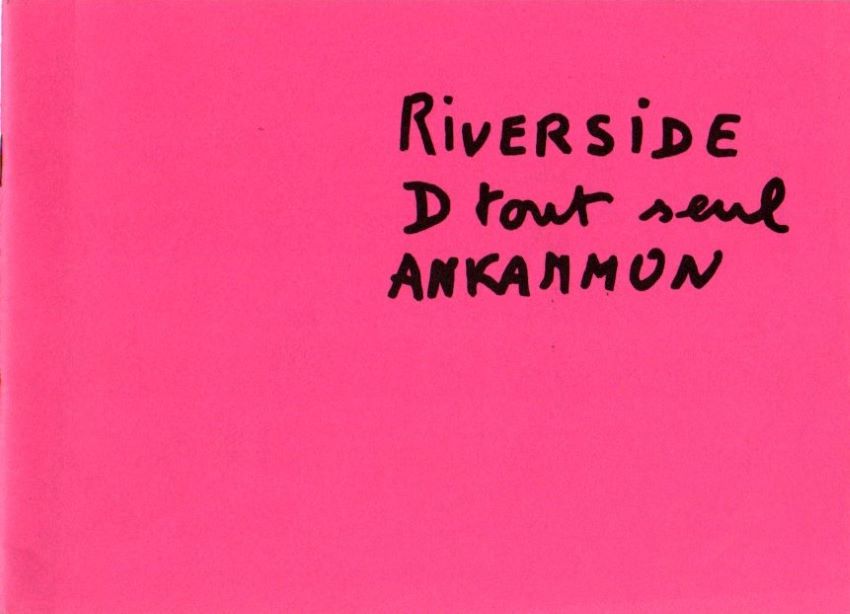 RiVERSiDE
D tout seul
ANKAMMON